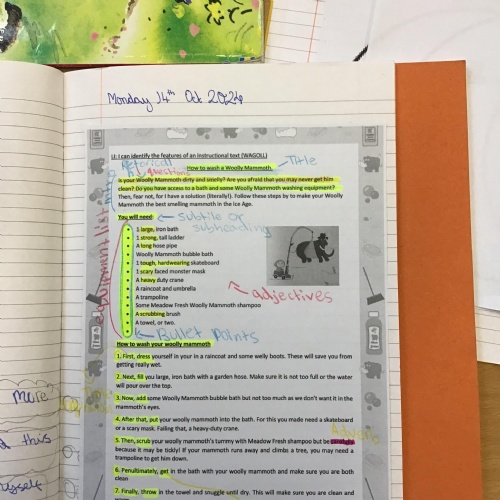 Monday 14th Oct 2024
LI: I can identify the features of an instructional text (WAGOLL)
questions
How to wash a Woolly Mammoth.
Title
Is your Woolly Mammoth dirty and smelly? Are you afraid that you may never get him
clean? Do you have access to a bath and some Woolly Mammoth washing equipment?
Then, fear not, for I have a solution (literally!). Follow these steps by to make your Woolly
Mammoth the best smelling mammoth in the Ice Age.
You will need:
Subtile or
subheading
equipment list
1 large, iron bath
1 strong, tall ladder
A long hose pipe
Woolly Mammoth bubble bath
1 tough, hardwearing skateboard
1 scary faced monster mask
A heavy duty crane
A raincoat and umbrella
A trampoline
Some Meadow Fresh Woolly Mammoth shampoo
A scrubbing brush
A towel, or two.
adjectives
Bullet Points
How to wash your woolly mammoth
1. First, dress yourself in your in a raincoat and some welly boots. These will save you from
getting really wet.
2. Next, fill you large, iron bath with a garden hose. Make sure it is not too full or the water
will pour over the top.
3. Now, add some Woolly Mammoth bubble bath but not too much as we don't want it in the
mammoth's eyes.
4. After that, put your mammoth into the bath. For this you made need a skateboard
or a scary mask. Failing that, a heavy-duty crane.
5. Then, scrub your woolly mammoth's tummy with Meadow Fresh shampoo but be
because it may be tickly! If your mammoth runs away and climbs a tree, you may need a
trampoline to get him down.
6. Penultimately, get in the bath with your woolly mammoth and make sure you are both
clean
7. Finally, throw in the towel and snuggle until dry. This will make sure you are clean and
more
this
myself